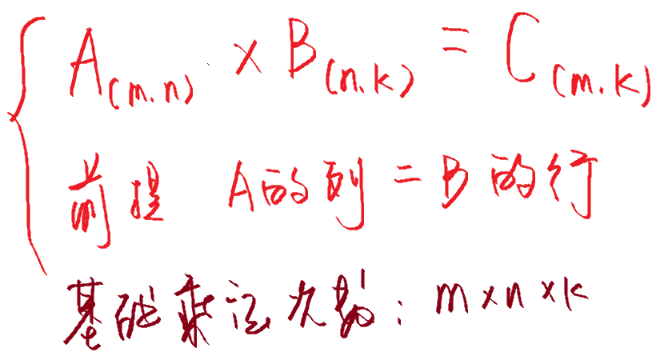 A(m.n) × B(n.k) = C(m.k)
前提 A的列 = B的行
基础乘法次数：m×n×k